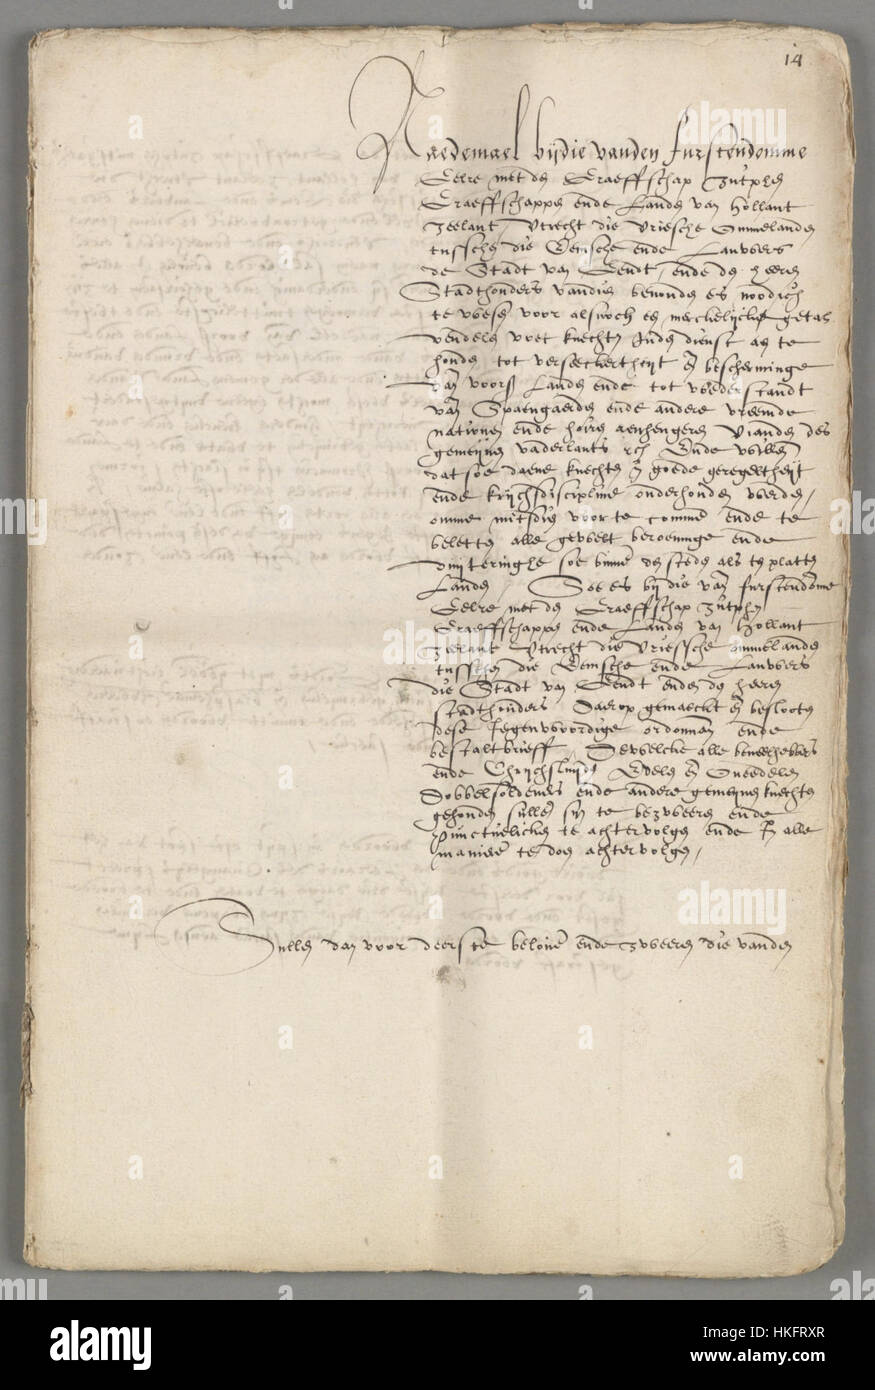 14
Naedemael bijdie vanden furstendomme
Gelre met de Graeffschap Zutphen
Graeffschappen ende Landen van Hollant
Zeelant Utrecht die Vriesche Ommelanden
tusschen die Eemsche ende Lauwers
de Stadt van Gendt, ende de heeren
Stadthouders vandien bevonden es noodich
te wesen voor alsnoch een merckelijcke getal
vendelen voet knechten Inden dienst aen te
houden tot verseeckertheyt en bescherminge
van voors Landen ende tot wederstandt
van Spaengaerden ende andere vreemde
natiouen ende hoire aenhengeren Vianden des
gemeijnen vaderlants Ende willen
dat soe daene knechten in goede geregeltheijt
ende krijchsdiscipline onderhouden werden,
omme mitsdien voor te commen ende te
beletten alle gewelt berovinge ende
vuijteringhe soe binnen de steden als ten platten
Landen, Soe es bij die van furstendomme
Gelre met de Graeffschap Zutphen
Graeffschappen ende Landen van Hollant
Zeelant Utrecht die Vriessche ommelanden
tusschen die Eemsche ende Lauwers
die Stadt van Gendt ende de heeren
stadthouders Daerop gemaeckt en beslooten
dese Jegenwoordige ordonnan ende
bestaltbrieff Dewelcke alle beveelhebbers
ende Chrijchsluijden Edele en Oneedelen
Dobbelsoldeners ende andere gemeijne knechten
gehouden sullen sijn te bezweeren ende
Punctuelicken te achtervolgen ende alle
manieren te doen achtervolgen,
Sullen dan voor deerste beloven ende zweeren die vanden
alamy
alamy
Image ID: HKFRXR
www.alamy.com